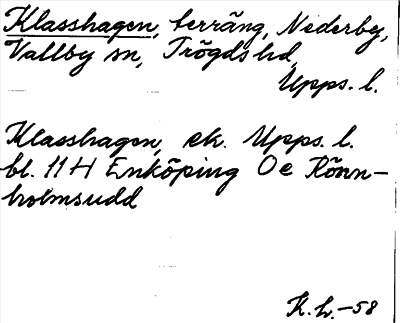 Klasshagen, terräng, Nederby,
Vallby sn, Trögds hd,
Upps. l.
Klasshagen, ek. Upps. l.
bl. 11 H Enköping 0e Rönn-
holmsudd
K. L. -58